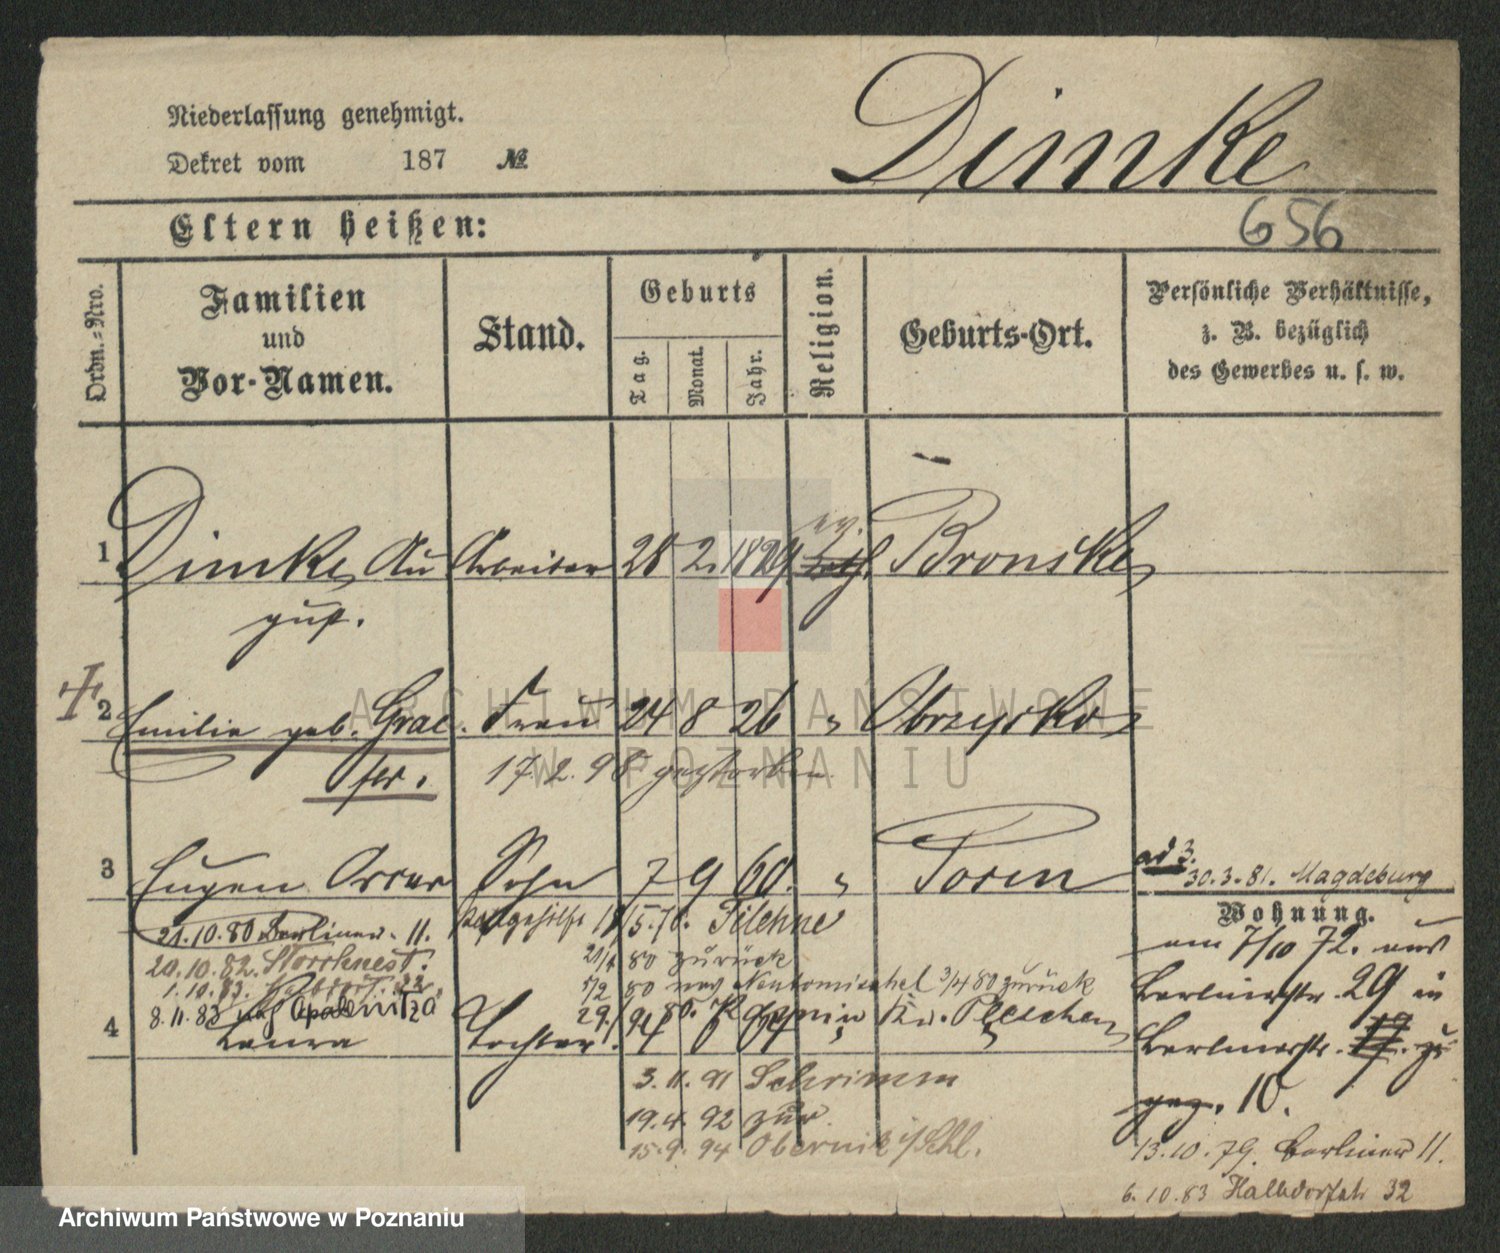 Niederlassung genehmigt.
Dekret vom 187 №
Dimke
656
Eltern heißen:
Ordn.-Nro.
Familien und Vor-Namen.
Stand.
Geburts
Tag. Monat. Jahr.
Religion.
Geburts-Ort.
Persönliche Verhältnisse, z. B. bezüglich des Gewerbes u. s. w.
1 Dimke, Au Arbeiter 28 2. 1829 ev. Kath. Bronske
gust.
2 Emilie geb. Grae Frau 24 8 26 " Obrzycko
ser. 17.2.98 gestorben
3 Eugen Oscar Sohn 7 9 60. " Posen
ad 3.
30.3.81. Magdeburg
Wohnung.
21.10.80 Berliner. 11. 5.70. Filehne
20.10.82. Storchnest. 80 zurück
1.10.83. 80 nach Neutomischel 3/4 80 zurück
8.11.83 nach Opalenitza 29. Kr. Pleschen
4 Laura Tochter.
3.11.91 Schrimm
19.4.92 zur.
15.9.94 Obernik i/Schl.
am 7/10 72. aus
Berlinerstr. 29 in
Berlinerstr. 19. zu
gez. 10.
13.10.79. Berliner 11.
6.10.83 Halbdorfstr 32
ARCHIWUM PAŃSTWOWE
W POZNANIU
Archiwum Państwowe w Poznaniu